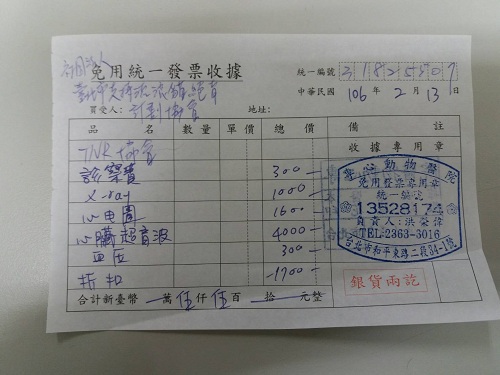 免用統一發票收據
統一編號 31825507
中華民國 106 年 2 月 13 日
買受人: 計劃協會 地址:
品 名 數量 單價 總價 備 註
收據專用章
TNR 協會
診察費 300
X-ray 1000
心电图 1600
心臟超音波 4000
血压 300
折扣 -1700
合計新臺幣 萬 伍 仟 伍 百 拾 元整
動物醫院
免用發票專用章
統一編號
13528174
負責人:洪
TEL:2363-3016
台北市和平東路二段34-1號
銀貨兩訖